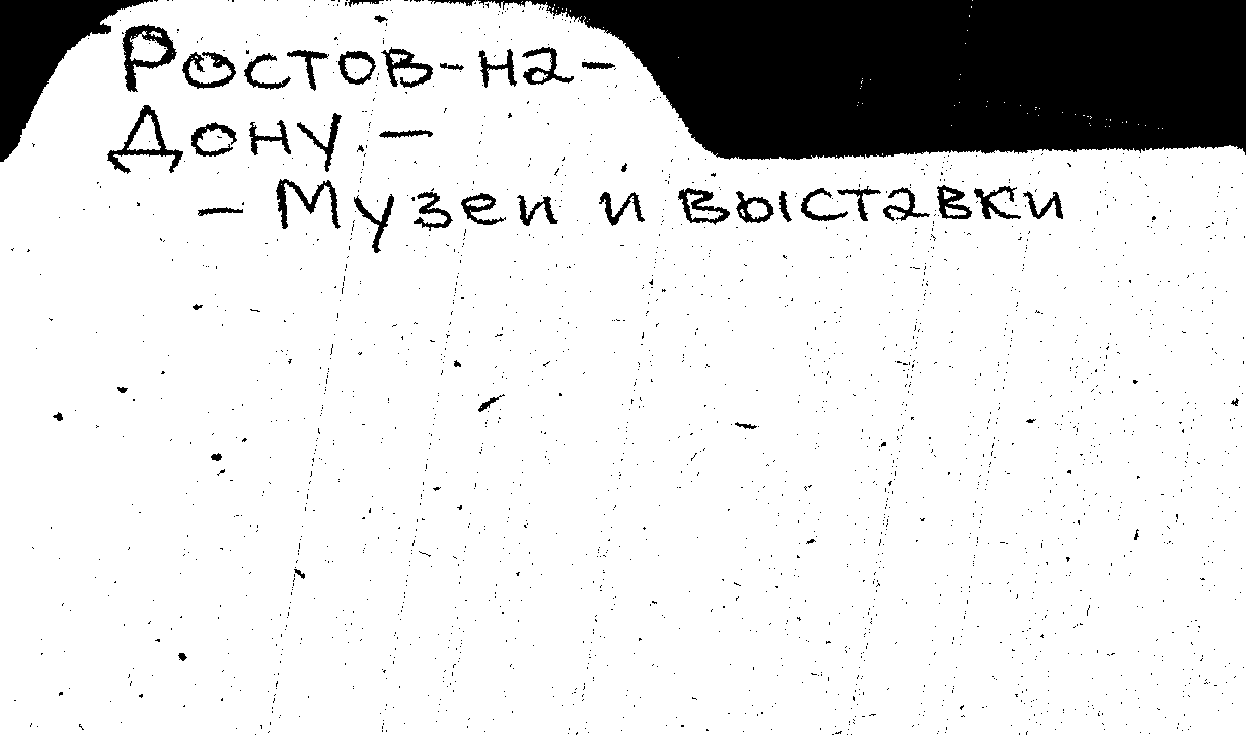 Ростов-на-
Дону —
- Музеи и выставки